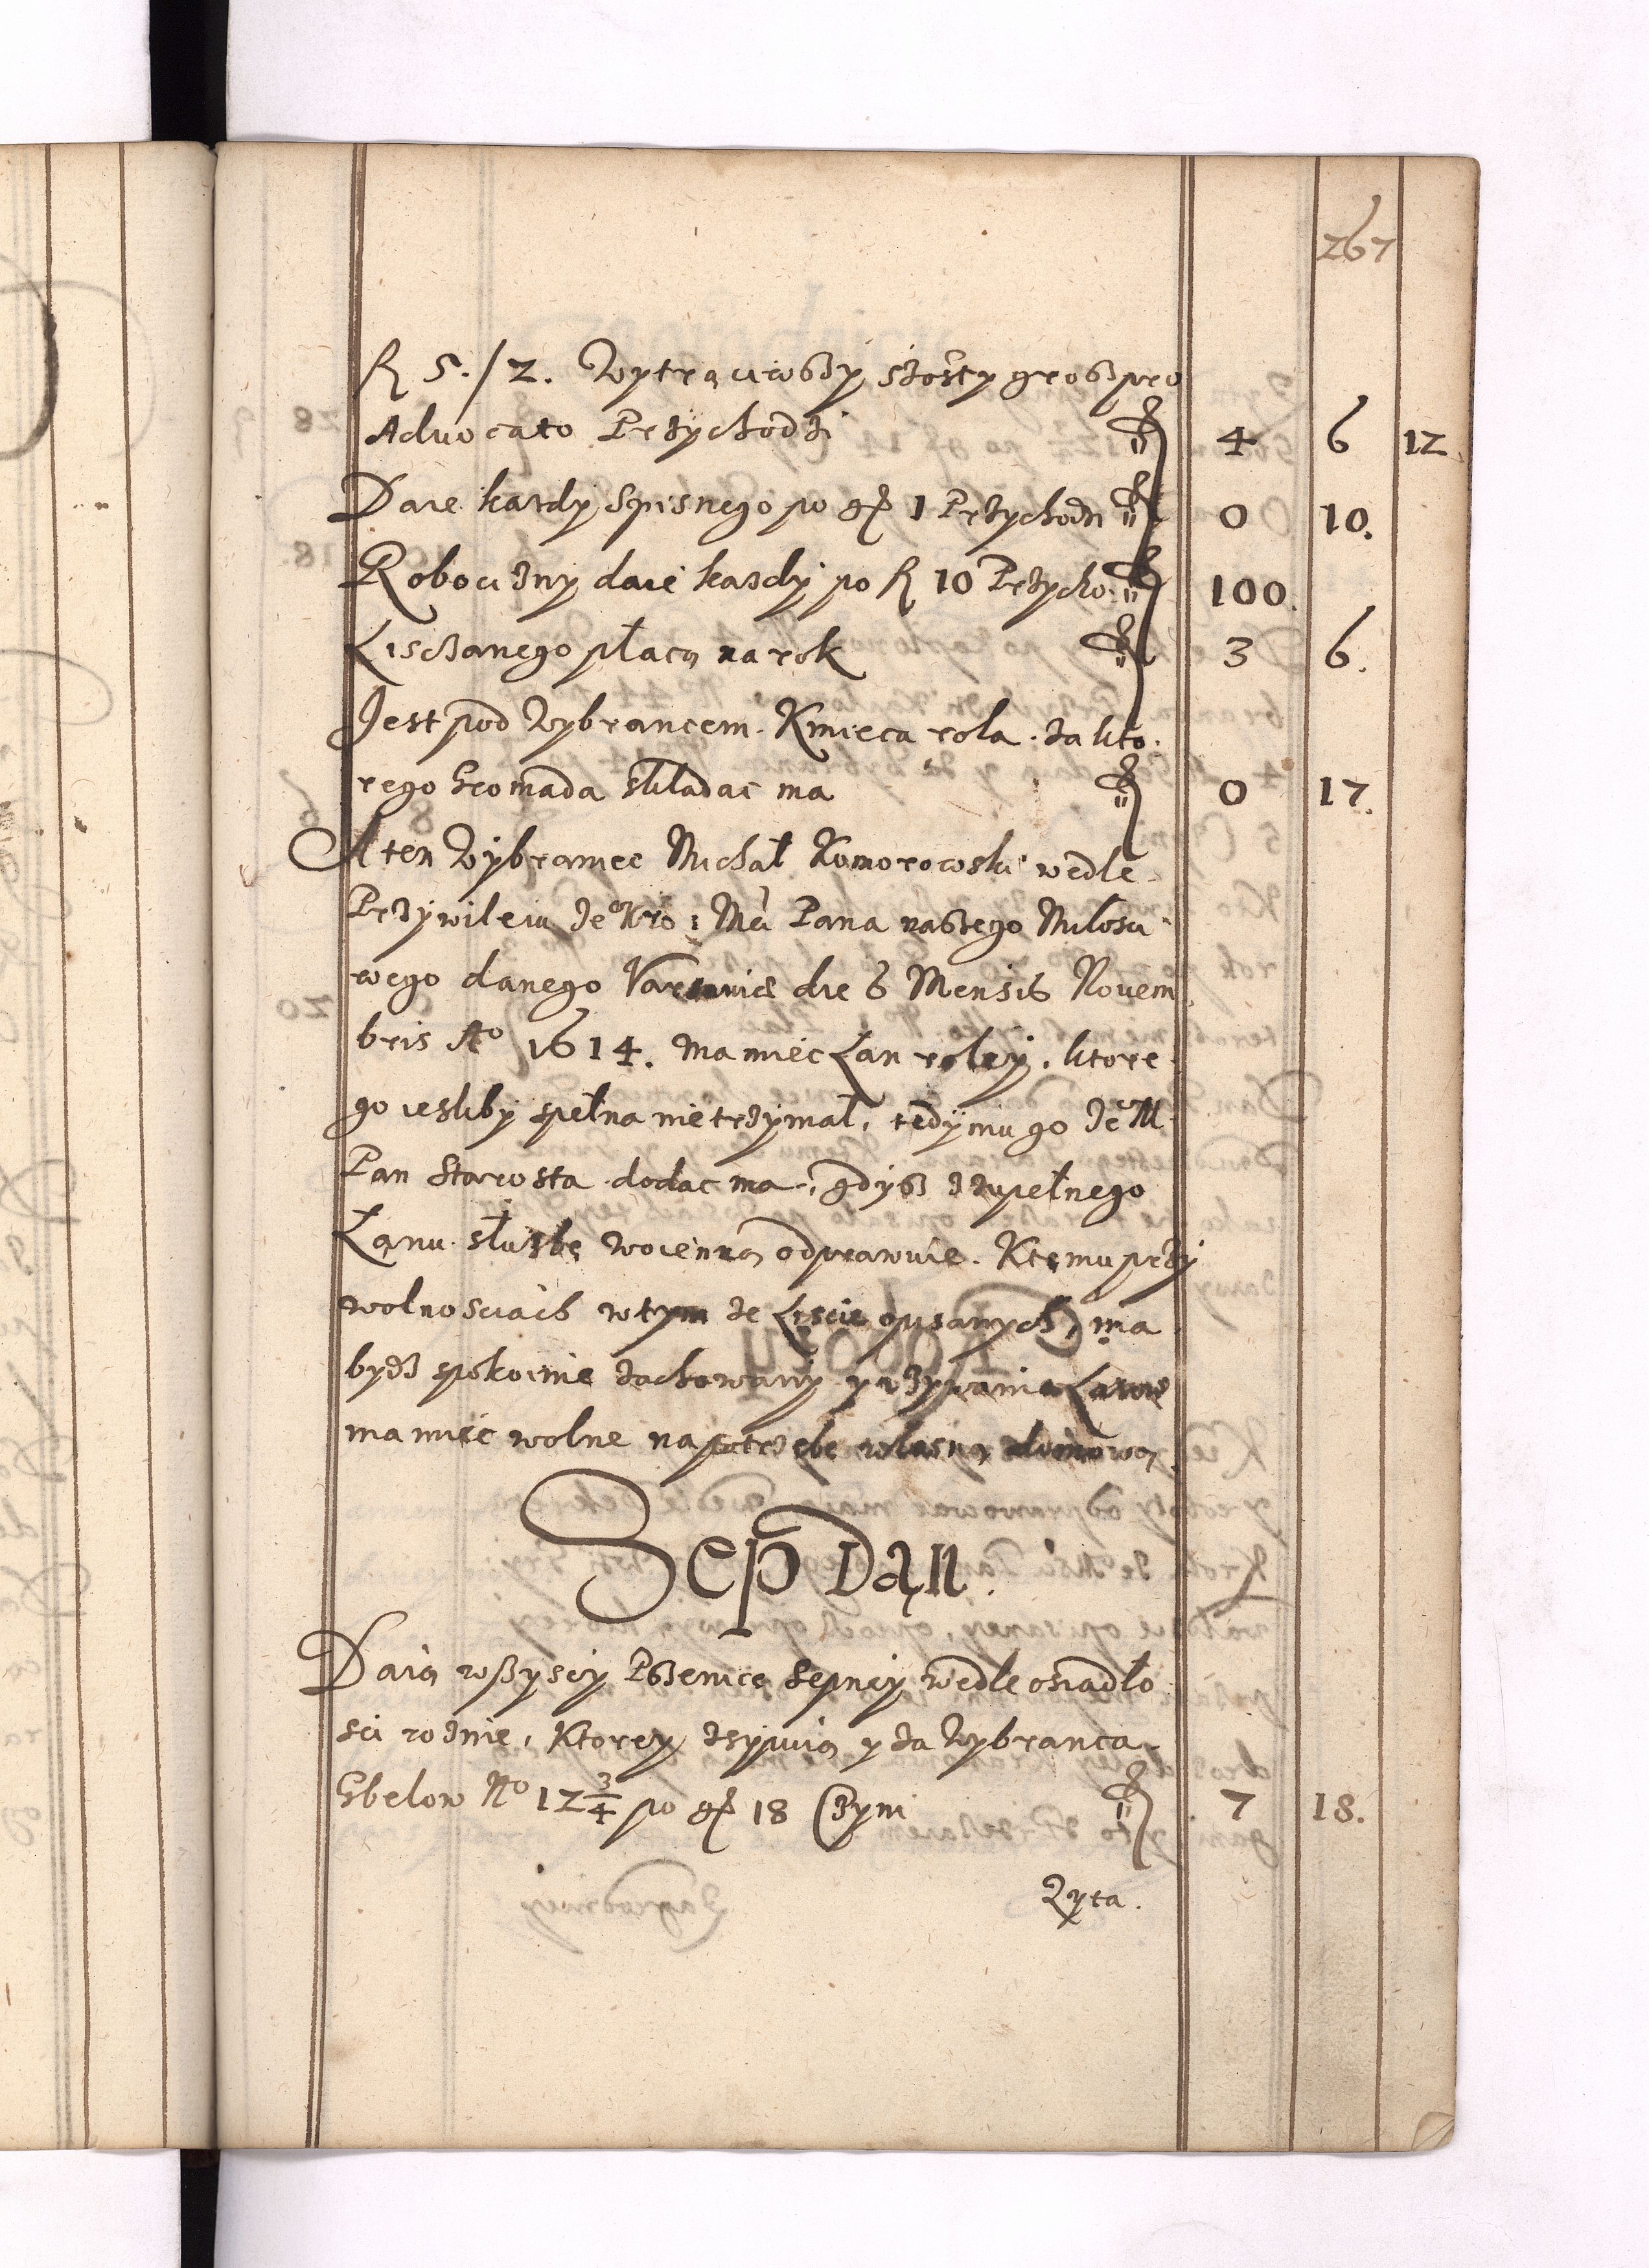 267
fl 5./2. Wytrąciwszy szosty grosz pro
Aduocato Przychodzi fl 4 6 12
Daie kazdy Spisnego po gr 1 Przychodzi fl 0 10.
Robocizny daie kazdy po fl 10 Przycho: fl 100.
Lisczanego płacą na rok fl 3 6.
Jest pod Wybrancem. Kmieca rola. za kto.
rego Gromada składać ma fl 0 17.
A ten Wybraniec Michał Komorowski wedle
Przywileiu Je° Kro: Mci Pana naszego Miłosci
wego danego Varsauiae die 6 Mensis Nouem
bris A° 1614. ma mieć Łan roley. ktore
go iesliby spełna nie trzymał, tedy mu go Je° M
Pan Starosta dodac ma, gdysz z zupełnego
Łanu słuzbę woienną odprawuie. Ktemu przy
wolnosciach w tym ze Liscie opisanych, ma
bydz spokoinie zachowany y vzywanie Lasow
ma mieć wolne na potrzebę własną domową
Sep Dąn.
Daią wszyscy Pszenicę Sepney wedle osiadło
sci rożnie, Ktorey zsypuią y za Wybranca
Gbelow N° 12 3/4 po gr 18 Czyni fl 7 18.
Zyta.